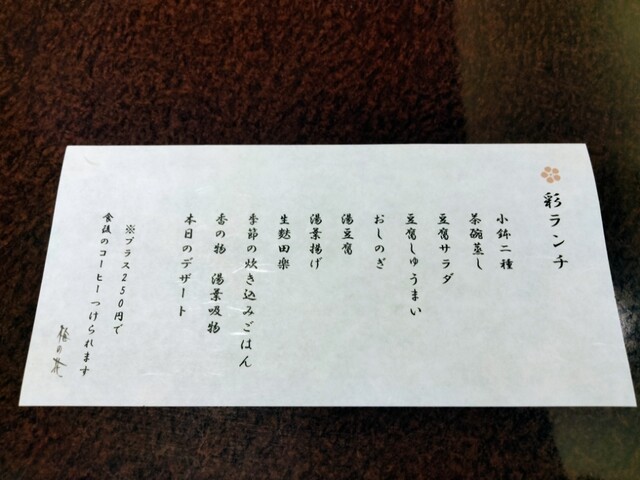 彩ランチ
小鉢二種
茶碗蒸し
豆腐サラダ
豆腐しゅうまい
おしのぎ
湯豆腐
湯葉揚げ
生麩田楽
季節の炊き込みごはん
香の物　湯葉吸物
本日のデザート
※プラス250円で
食後のコーヒーつけられます